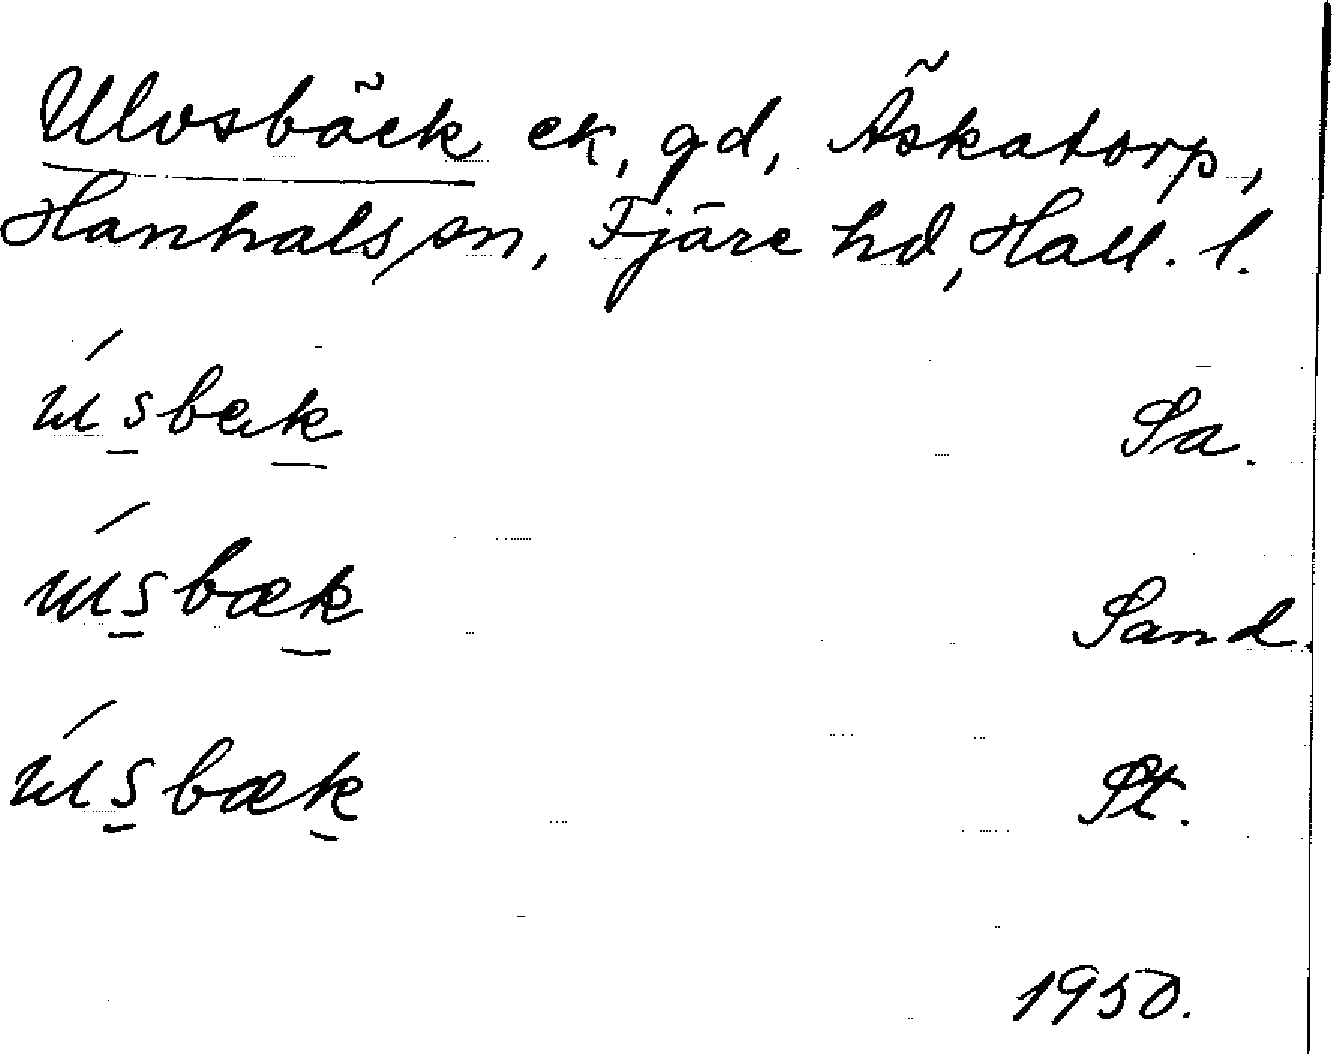 Ulvsbäck ek, gd, Äskatorp,
Hanhals sn, Fjäre hd, Hall. l.
úlsbæk Sa.
úlsbæk Sand.
úlsbæk St.
1950.